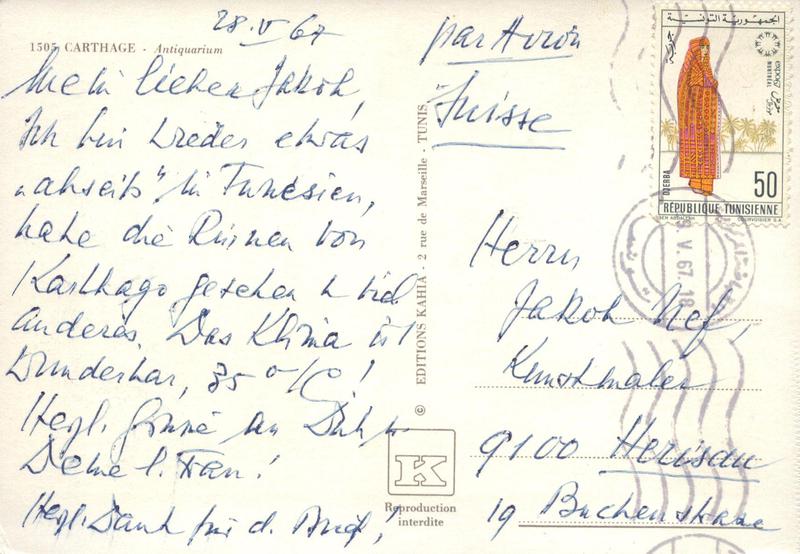 28. V 67
1505 CARTHAGE - Antiquarium
Mein lieber Jakob,
Ich bin wieder etwas
„abseits" in Tunesien,
habe die Ruinen von
Karthago gesehen u viel
anderes. Das Klima ist
wunderbar, 35 º/C!
Herzl. Grüsse an Dich u
Deine l. Frau!
Herzl. Dank für d. Brief!
© EDITIONS KAHIA - 2 rue de Marseille - TUNIS
K
Reproduction
interdite
par Avion
Suisse
Herrn
Jakob Nef,
Kunstmaler
9100 Herisau
19 Buchenstrasse
الجمهورية التونسية
جربة
expo67
MONTREAL
DJERBA
50
RÉPUBLIQUE TUNISIENNE
BEN ABDALLAH
COURVOISIER S.A.
V. 67.18